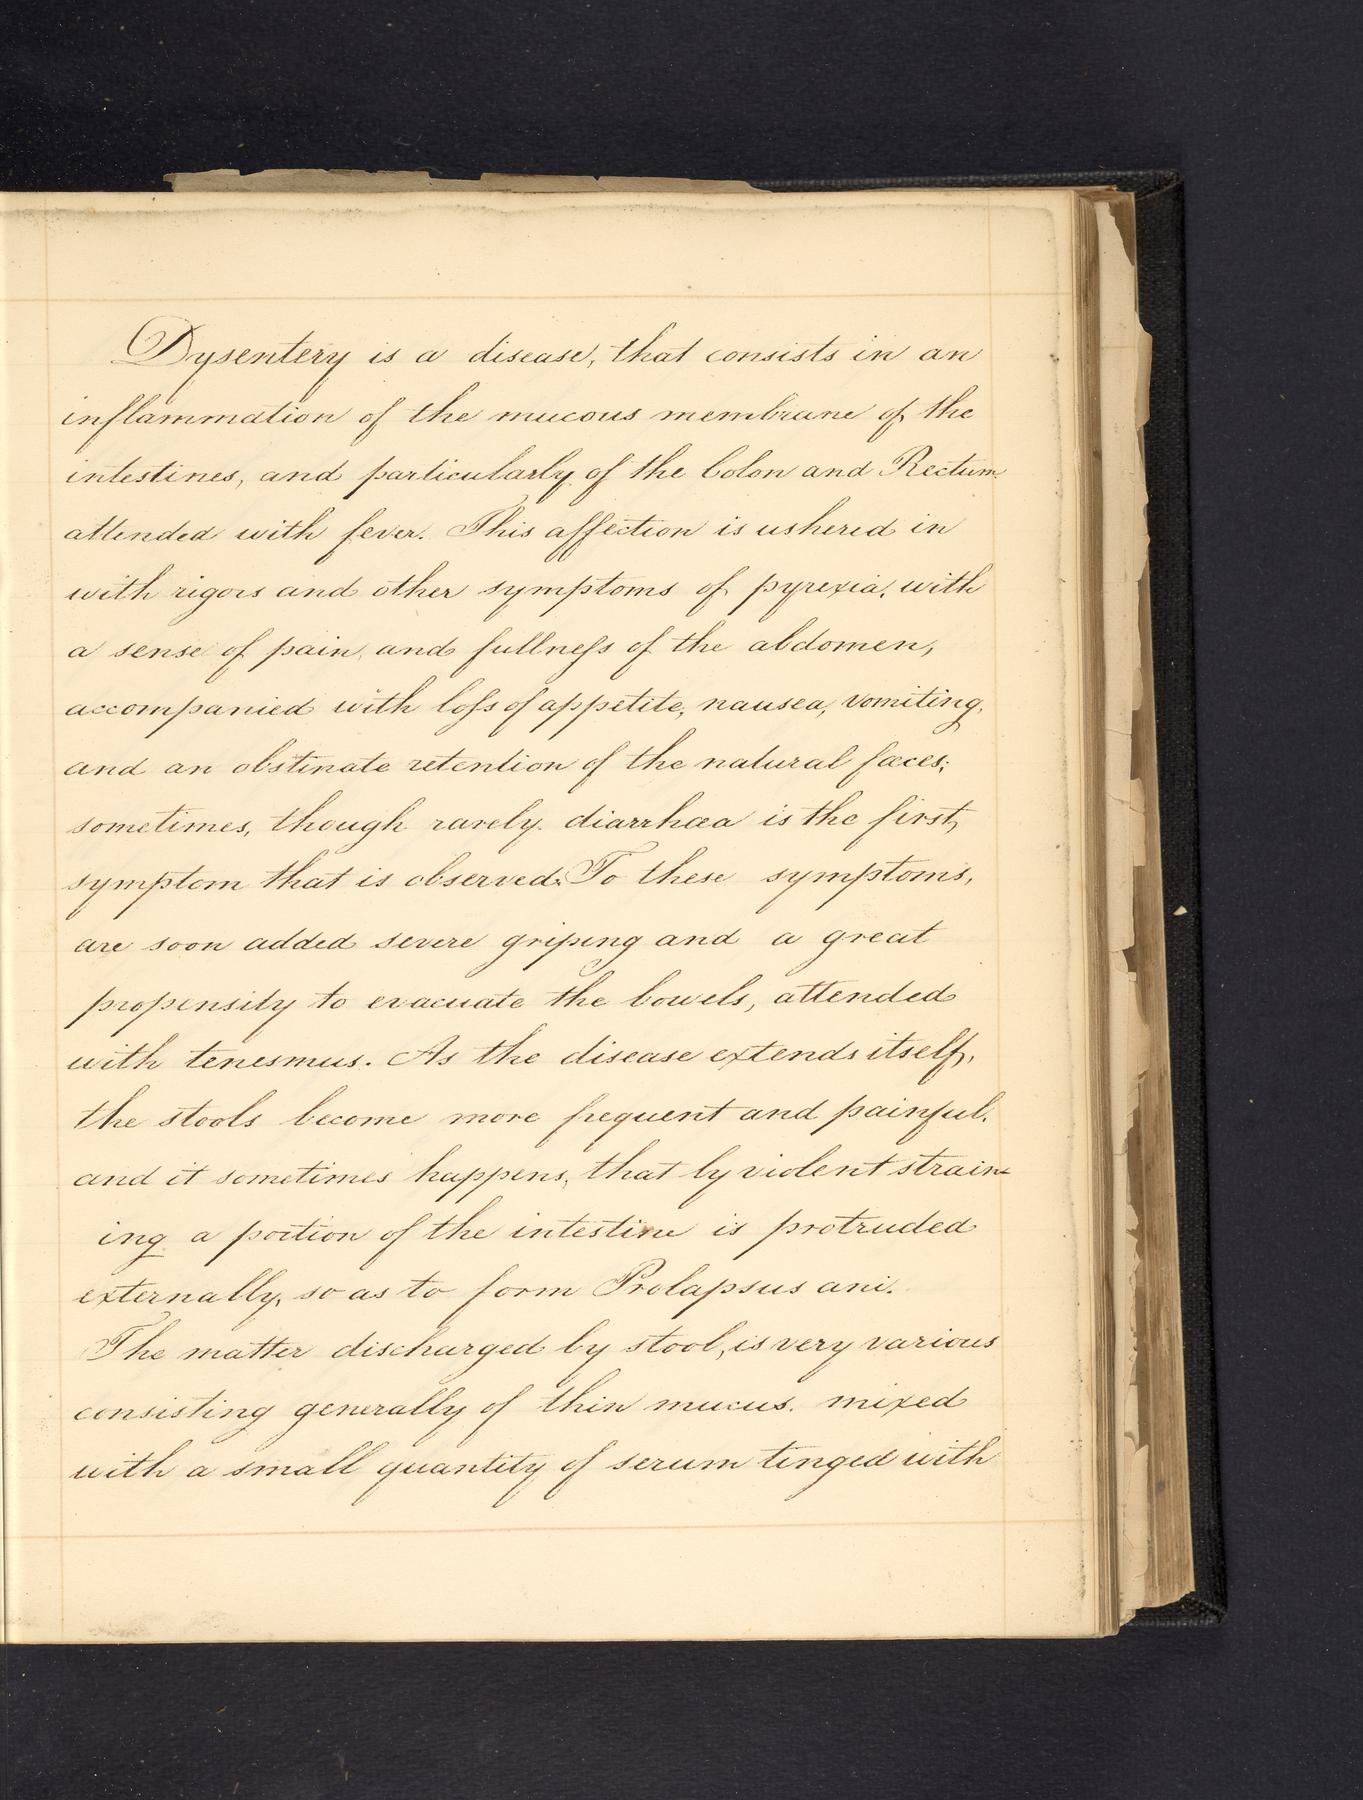 Dysentery is a disease, that consists in an
inflammation of the mucous membrane of the
intestines, and particularly of the Colon and Rectum
attended with fever. This affection is ushered in
with rigors and other symptoms of pyrexia, with
a sense of pain, and fullneſs of the abdomen,
accompanied with loſs of appetite, nausea, vomiting,
and an obstinate retention of the natural fæces;
sometimes, though rarely diarrhœa is the first,
symptom that is observed. To these symptoms,
are soon added severe griping and a great
propensity to evacuate the bowels, attended
with tenesmus. As the disease extends itself,
the stools become more frequent and painful,
and it sometimes happens, that by violent strain-
ing a portion of the intestine is protruded
externally, so as to form Prolapsus ani.
The matter discharged by stool, is very various
consisting generally of thin mucus, mixed
with a small quantity of serum tinged with